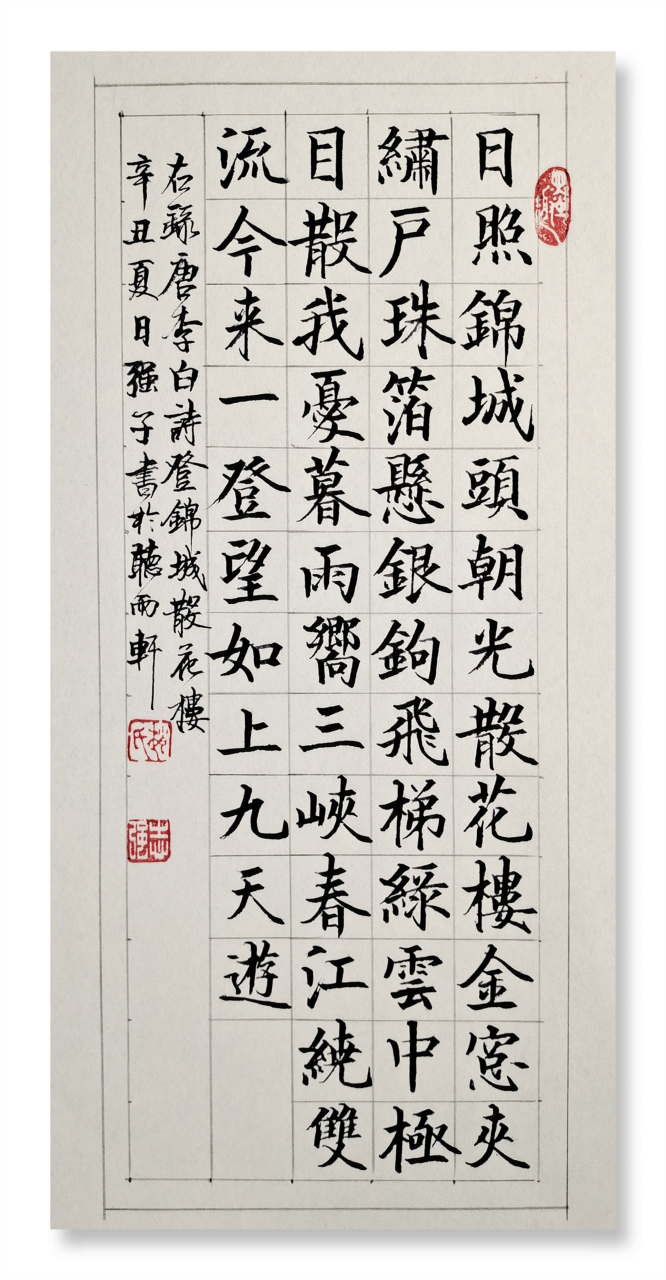 日照錦城頭朝光散花樓金窓夾
繡戶珠箔懸銀鉤飛梯綠雲中極
目散我憂暮雨嚮三峽春江繞雙
流今来一登望如上九天遊
右錄唐李白詩登錦城散花樓
辛丑夏日强子書於聽雨軒
趙氏
志强